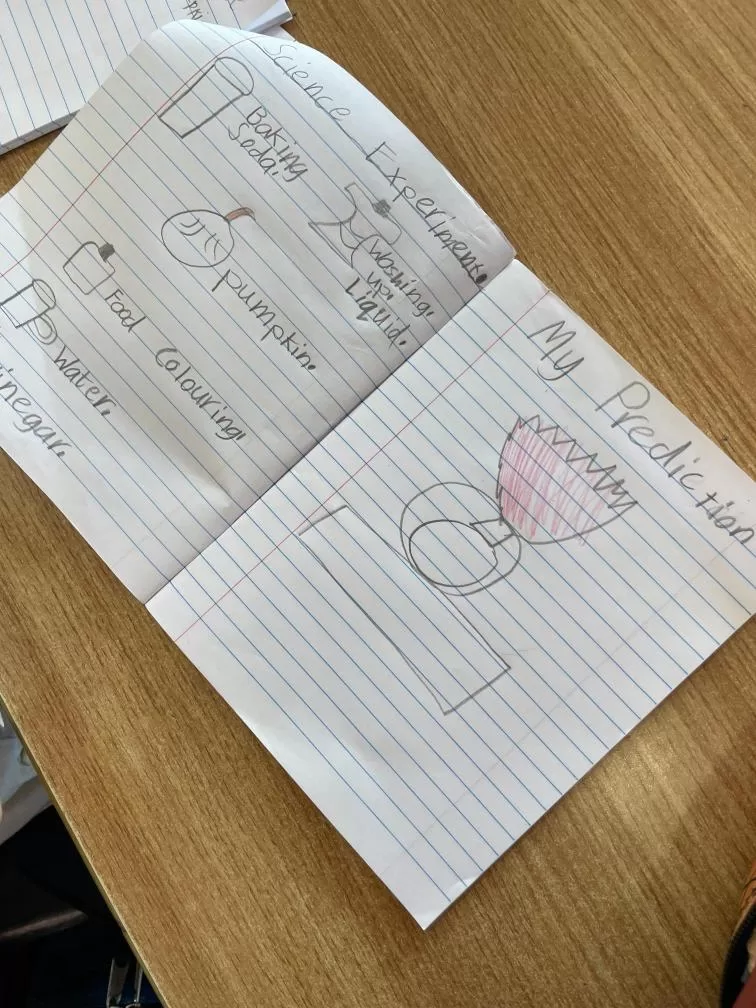 Science Experiment.
Baking
Soda.
Washing
up
Liquid.
pumpkin.
Food Colouring
Water.
inegar.
My Prediction